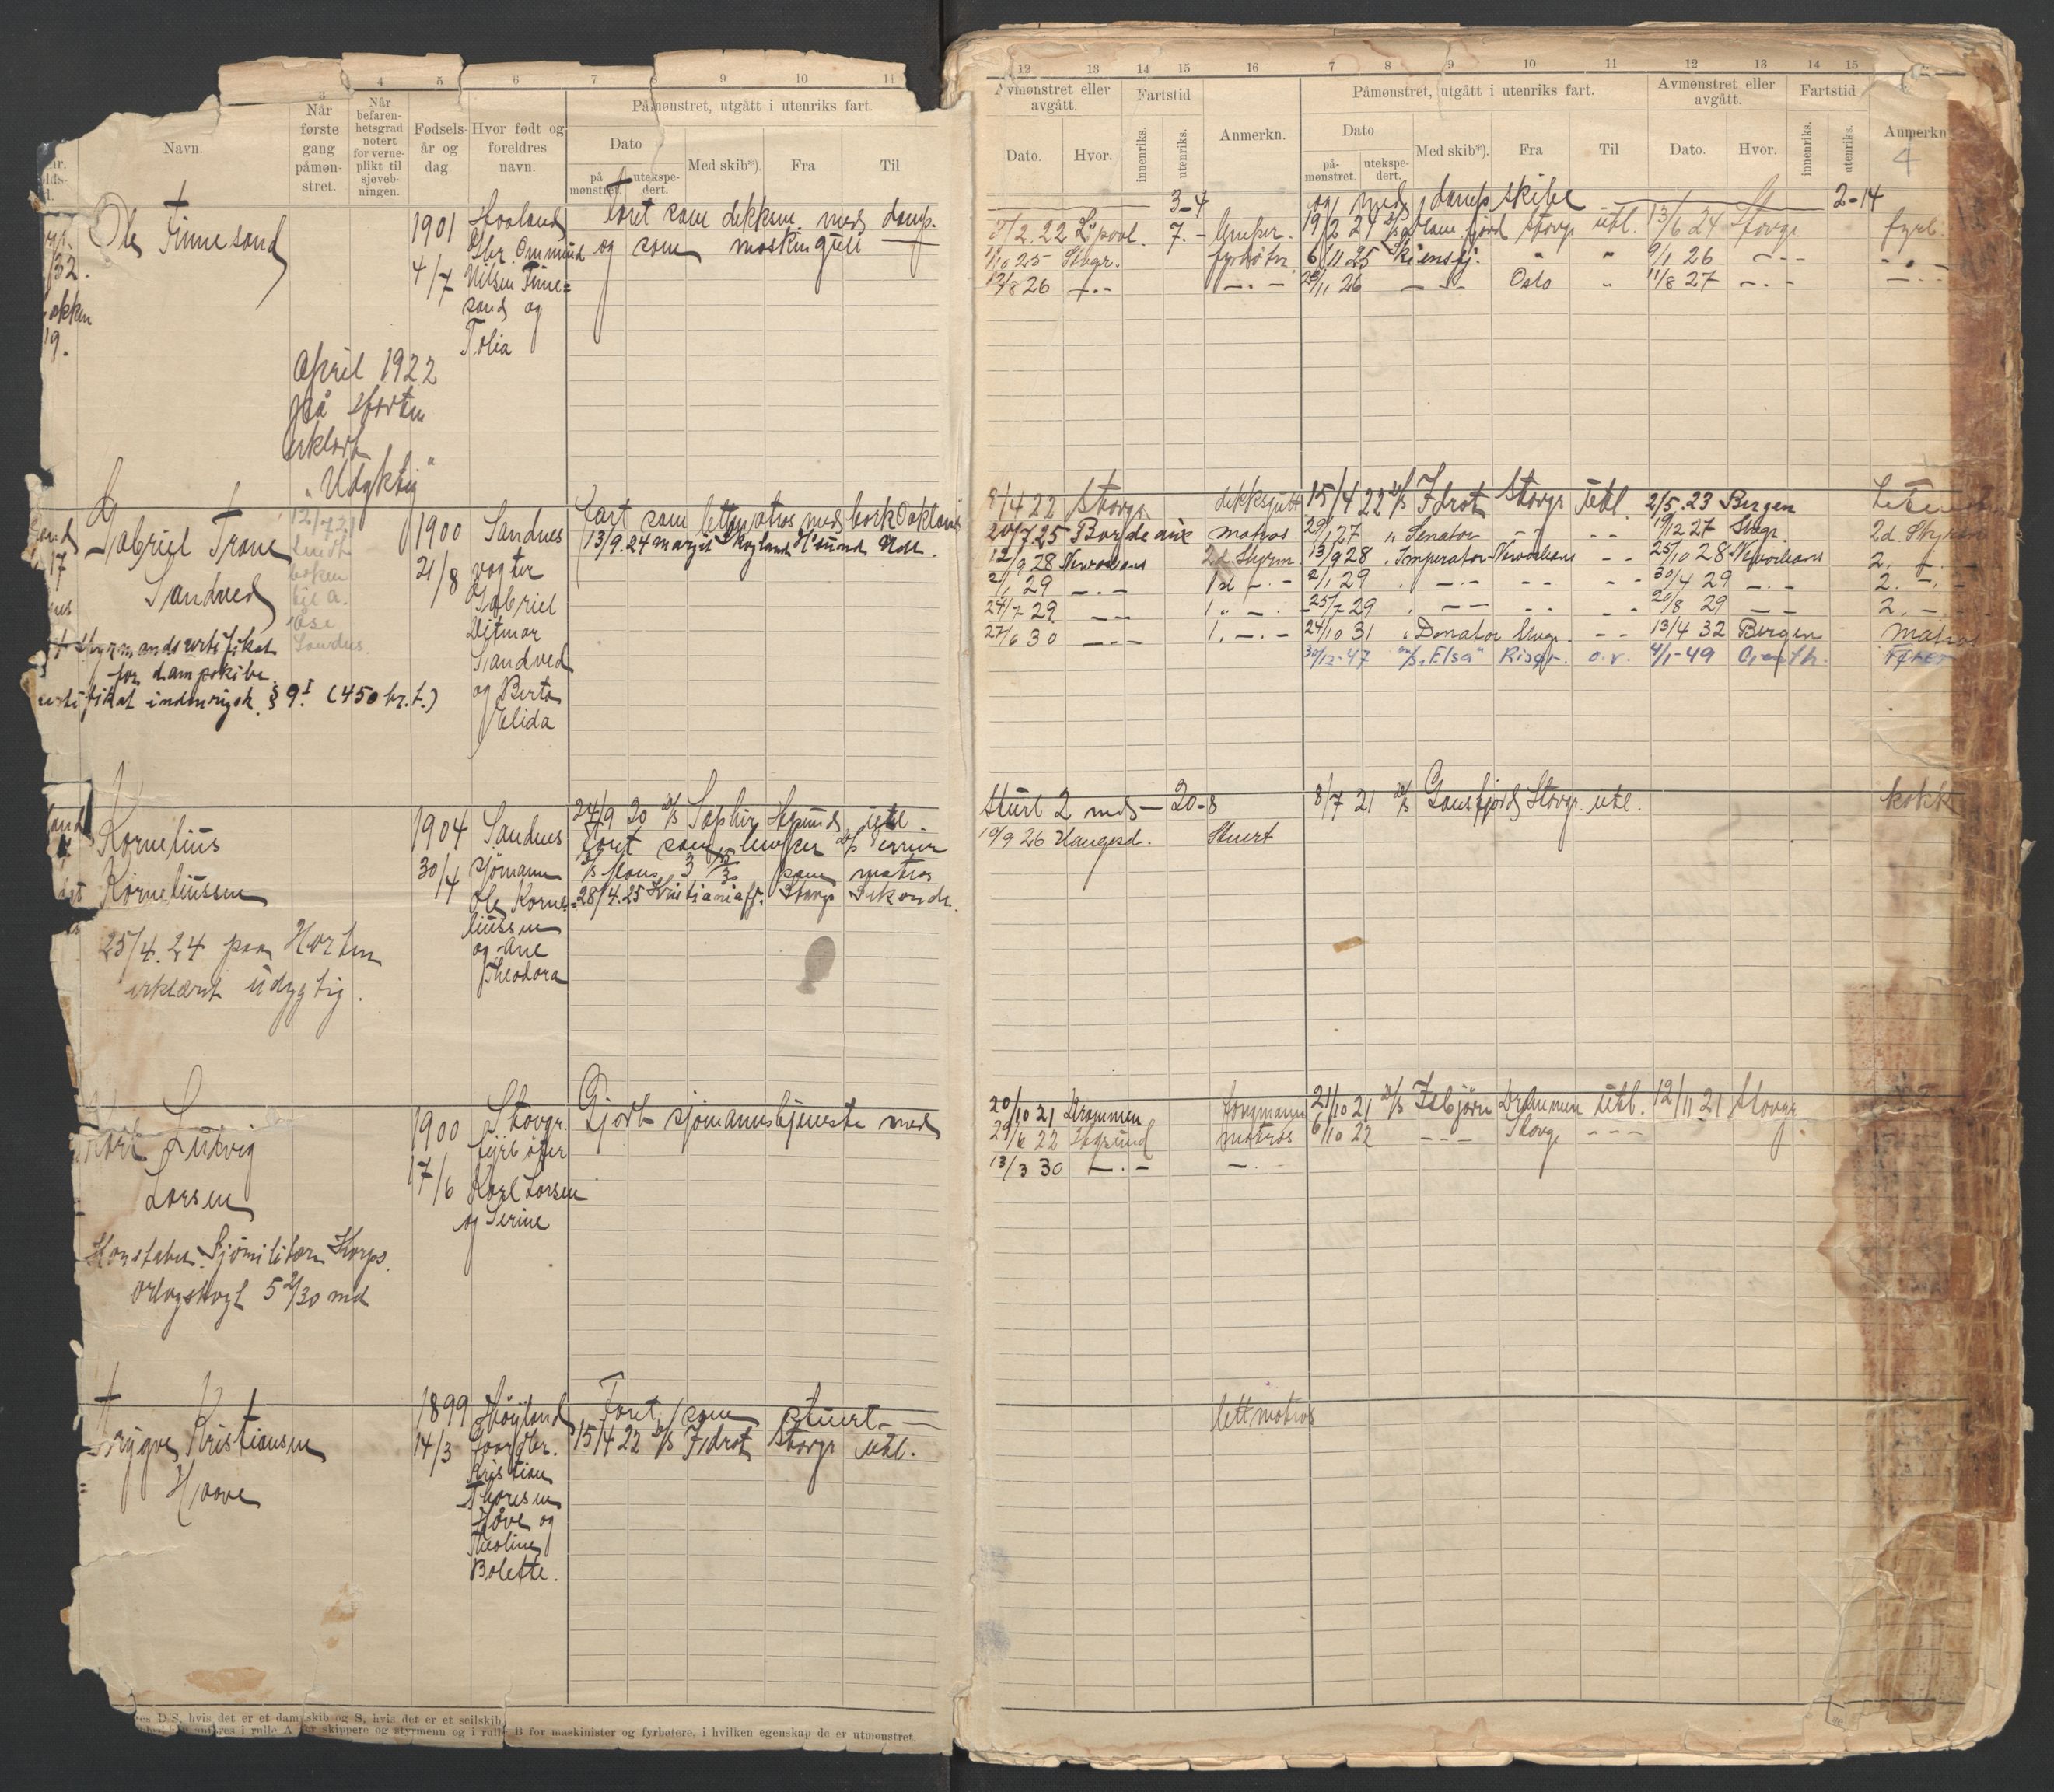 3 4 5 6 7 8 9 10 11
Navn.
Når første gang påmøn- stret.
Når befaren- hetsgrad notert for verne- plikt til sjøveb- ningen.
Fødsels- år og dag
Hvor født og foreldres navn.
Påmønstret, utgått i utenriks fart.
Dato
på mønstret.
utekspe- dert.
Med skib*).
Fra
Til
Ole Finnesand
1901
4/7
Haaland
Gbr. Ommund
Nilsen Finne=
sand og
Tolia
Faret som dekksm. med damp.
og som maskingutt
/32.
19.
April 1922
på Horten
erklært
"Udyktig"
Gabriel Trane
Sandved
12/7 21
Sendt
boken
til a.
Åse
Sandnes.
1900
21/8
Sandnes
vogter
Gabriel
Ditmar
Sandved
og Berta
Elida
Fart som lettmatros med bark Oakland
13/9.24 Margit Skogland H'sund Utl.
17
Styrmandscertifikat
for dampskibe.
certifikat indenrigsk. § 9.I (450 br.t.)
Kornelius
Korneliussen
1904
30/4
Sandnes
sjømann
Ole Korne=
liussen
og Ane
Theodora
24/9 20 D/S Saphir H'sund utl.
Faret som lemper D/S
3 15/30 som matros
28/4.25 Kristianiafj. Stavgr
25/4.24 paa Horten
erklært udygtig.
Karl Ludvig
Larsen
1900
17/6
Stavgr.
fyrbøter
Karl Larsen
og Serine
Gjort sjømannstjeneste med
Konstabel. Sjømilitære Korps.
Orlogstogt 5 2/30 md
Trygve Kristiansen
Haave
1899
14/3
Høyland
Gaardbr.
Kristian
Thoresen
Håve og
Theoline
Bolette.
Faret som stuert
15/4 22 D/S Idrot Stavgr utl.
res D/S, hvis det er et dampskib og S, hvis det er et seilskib
anføres i rulle A for skippere og styrmenn og i rulle B for maskinister og fyrbøtere, i hvilken egenskap de er utmønstret.
12 13 14 15 16 7 8 9 10 11 12 13 14 15
Avmønstret eller avgått.
Dato.
Hvor.
Fartstid
innenriks.
utenriks.
Anmerkn.
Påmønstret, utgått i utenriks fart.
Dato
på- mønstret.
utekspe- dert.
Med skib*).
Fra
Til
Avmønstret eller avgått.
Dato.
Hvor.
Fartstid
innenriks.
utenriks.
Anmerkn
4
3-4 og med dampskibe 2-14
/2.22 L'pool. 7.- lemper. 19/2 24 Stavgr utl. 13/6 24 Stavgr fyrb.
1/10 25 Stvgr. fyrbøter 6/11 25 Skiensfj. " " 9/1 26 - - -
12/8 26 -.- -.- 26/11 26 - - - Oslo " 11/8 27 -.-
8/4 22 Stavgr dekksgutt 15/4 22 D/S Idrot Stavgr Utl. 2/5.23 Bergen
20/7.25 Bordeaux matros 29/1 27 " Senator - - - - 19/12 27 Stvgr. 2d. Styrm
12/9 28 Neworleans 2d. Styrm. 13/9 28 " Imperator Neworleans - - 25/10 28 Neworleans 2. -.-
2/1 29 -.- 1st -.- 2/1 29 " -.- - - - - 30/4 29 -.- 2. -.-
24/7 29. - - 1. -.- 25/7 29 " - - - - - - 20/8 29 - - 2. -.
27/6 30 -.- 1. -.- 24/10 31 " Donator Stvgr. - - 13/4 32 Bergen Matros
30/12-47 M/S "Elsa" Risør. o.v. 4/1-49
Stuert 2 mds - 20-8 8/7 21 D/S Gansfjord Stavgr. utl. kokk
10/9 26 Haugesd. Stuert
20/10 21 Drammen jungmann 21/10 21 D/S Isbjørn Drammen utl. 12/11 21 Stavgr
29/6 22 H'sund matros 6/10 22 - - - Stavgr - - -
13/3 30 -.- -.
lettmatros